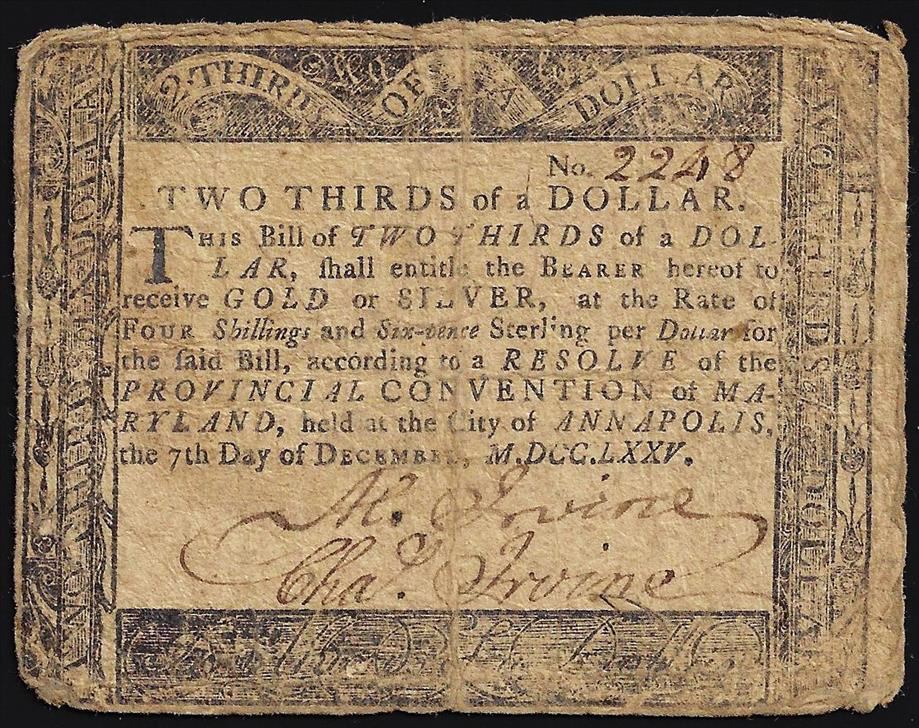 2 THIRDS OF A DOLLAR
No. 2248
TWO THIRDS of a DOLLAR.
THIS Bill of TWO THIRDS of a DOL-
LAR, ſhall entitle the BEARER hereof to
receive GOLD or SILVER, at the Rate of
FOUR Shillings and Six-pence Sterling per Dollar for
the ſaid Bill, according to a RESOLVE of the
PROVINCIAL CONVENTION of MA-
RYLAND, held at the City of ANNAPOLIS,
the 7th Day of DECEMBER, M.DCC.LXXV.
Al. Irvine
Chaſ. Irvine
TWO THIRDS of A DOLLAR
TWO THIRDS of A DOLLAR